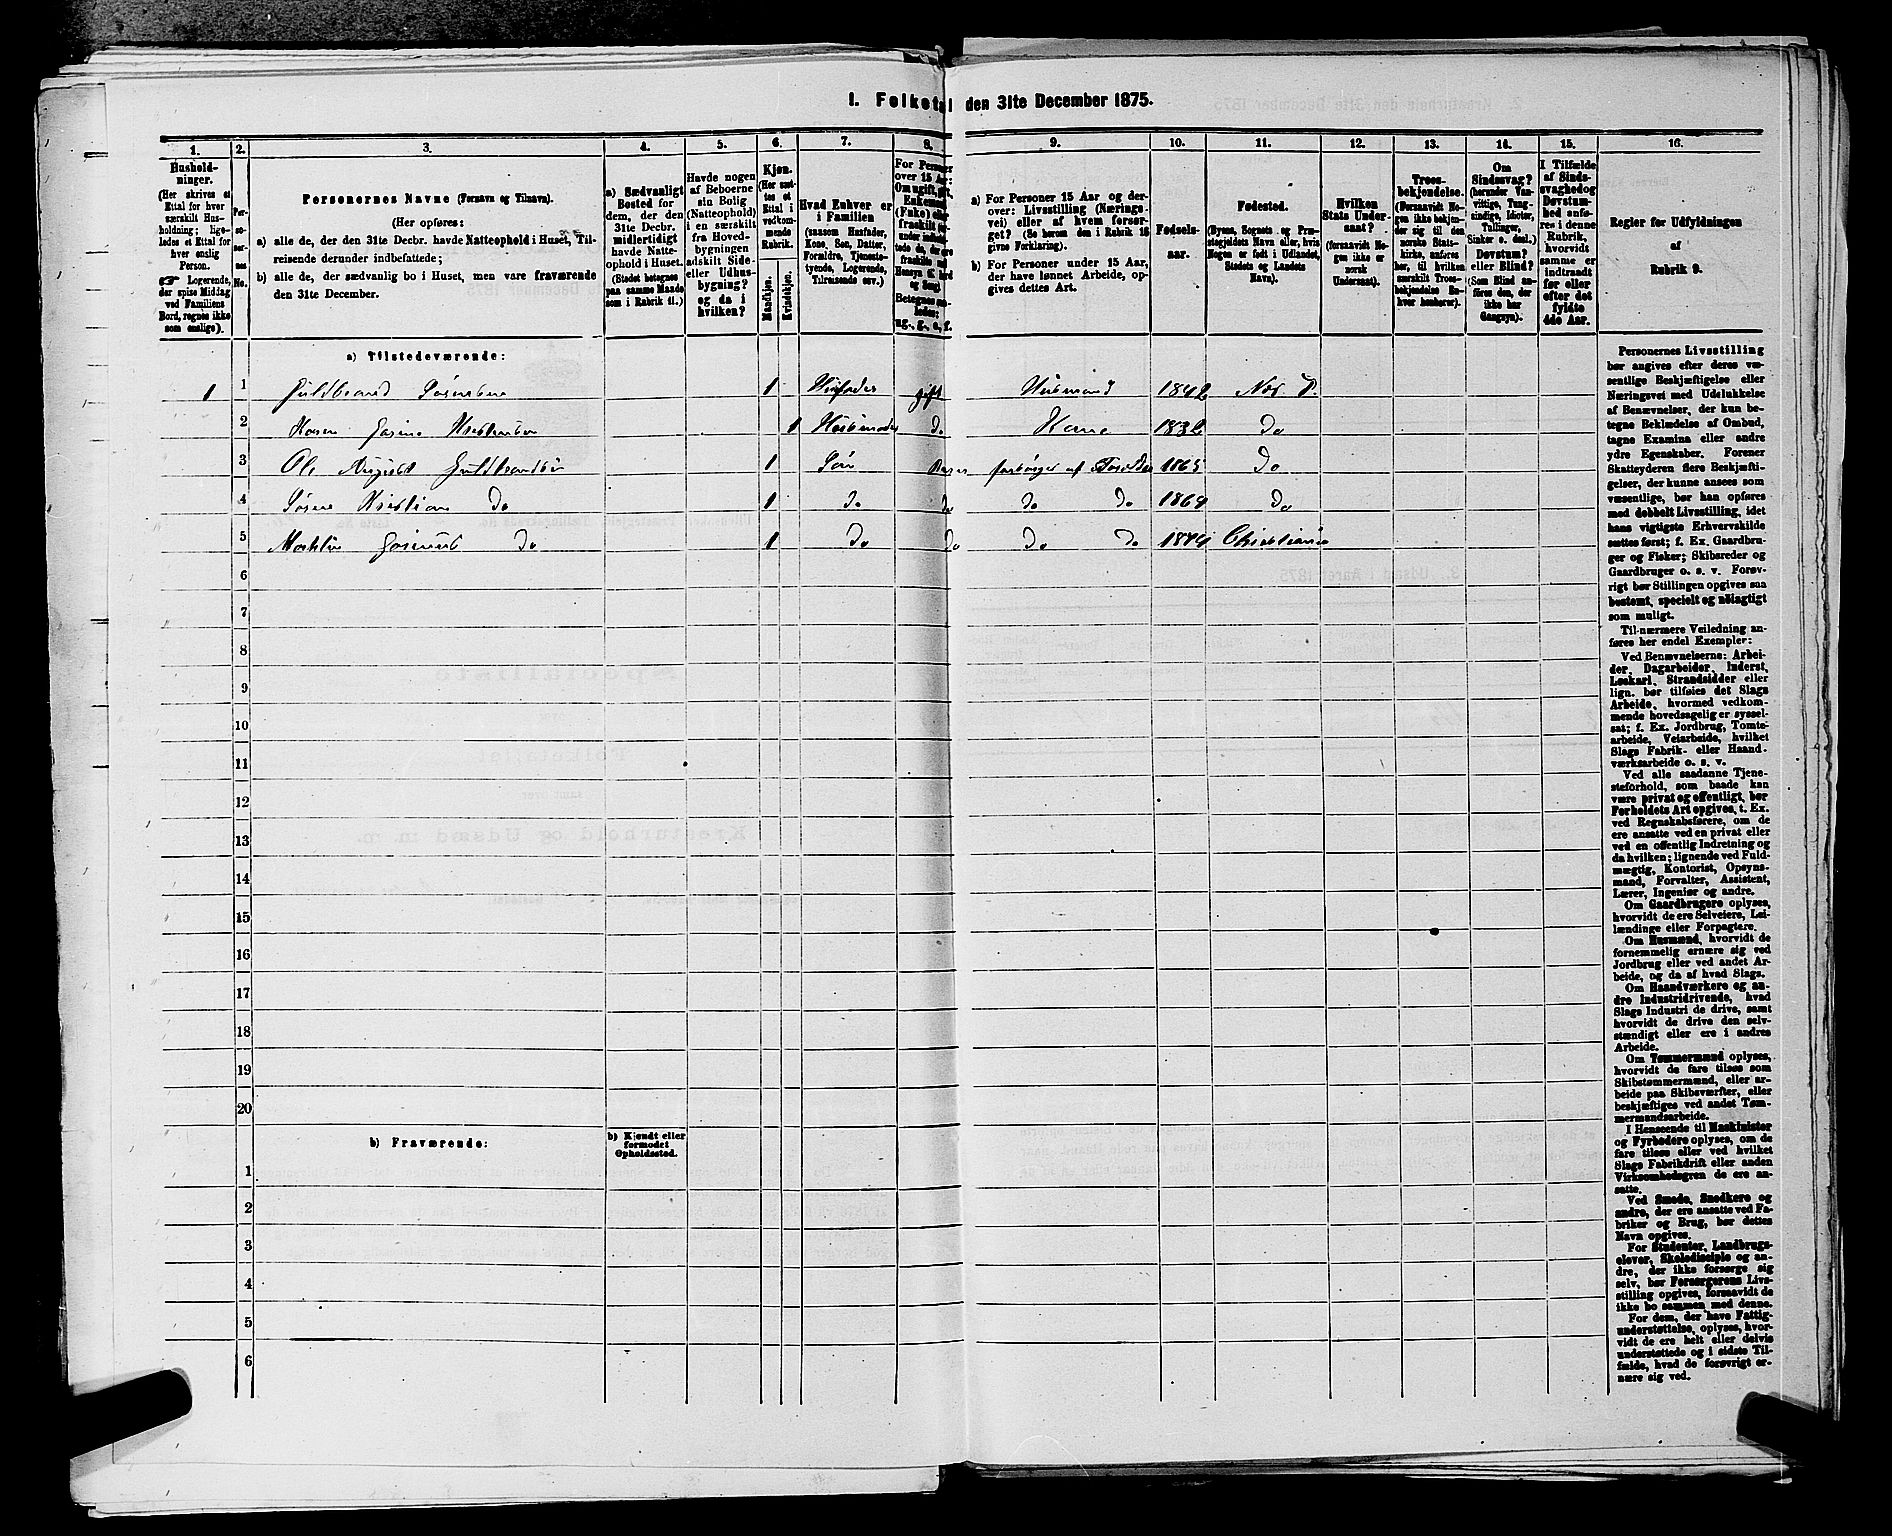 1. Folketal den 31te December 1875.
1. 2. 3. 4. 5. 6. 7. 8. 9. 10. 11. 12. 13. 14. 15. 16.
Hushold-
ninger.
(Her skrives et
Ettal for hver
særskilt Hus-
holdning; lige-
ledes et Ettal for
hver enslig
Person.
☞ Logerende,
der spise Middag
ved Familiens
Bord, regnes ikke
som enslige).
Per-
so-
ner-
nes
No.
Personernes Navne (Fornavn og Tilnavn).
(Her opføres:
a) alle de, der den 31te Decbr. havde Natteophold i Huset, Til-
reisende derunder indbefattede;
b) alle de, der sædvanlig bo i Huset, men vare fraværende
den 31te December.
a) Sædvanligt
Bosted for
dem, der den
31te Decbr.
midlertidigt
havde Natte-
ophold i Huset.
(Stedet betegnes
paa samme Maade
som i Rubrik 11.)
Havde nogen
af Beboerne
sin Bolig
(Natteophold)
i en særskilt
fra Hoved-
bygningen
adskilt Side-
eller Udhus-
bygning?
og da i
hvilken?
Kjøn.
(Her sæt-
tes et
Ettal i
vedkom-
mende
Rubrik.
Mandkjøn.
Kvindekjøn.
Hvad Enhver er
i Familien
(saasom Husfader,
Kone, Søn, Datter,
Forældre, Tjeneste-
tyende, Logerende,
Tilreisende osv.)
For Personer
over 15 Aar:
Om ugift, gift,
Enkemand
(Enke) eller
fraskilt
Betegnes saa-
ledes:
ug., g., e., f.
a) For Personer 15 Aar og der-
over: Livsstilling (Nærings-
vei) eller af hvem forsør-
get? (Se herom den i Rubrik 16
givne Forklaring).
b) For Personer under 15 Aar,
der have lønnet Arbeide, op-
gives dettes Art.
Fødsels-
aar.
Fødested.
(Byens, Sognets og Præ-
stegjeldets Navn eller, hvis
Nogen er født i Udlandet,
Stedets og Landets
Navn).
Hvilken
Stats Under-
saat?
(forsaavidt No-
gen ikke er
norsk
Undersaat).
Troes-
bekjendelse.
(Forsaavidt No-
gen ikke bekjen-
der sig til den
norske Stats-
kirke, anføres
her, til hvilken
særskilt Troes-
bekjendelse En-
hver henhører).
Om
Sindssvag?
(herunder Van-
vittige, Tung-
sindige, Idioter,
Tullinger,
Sinker o. desl.)
Døvstum?
eller Blind?
(Som Blind an-
føres den, der
ikke har
Gangsyn).
I Tilfælde
af Sinds-
svaghed og
Døvstum-
hed anfø-
res i denne
Rubrik,
hvorvidt
samme er
indtraadt
før eller
efter det
fyldte
4de Aar.
Regler før Udfyldningen
af
Rubrik 9.
a) Tilstedeværende:
1 1 Guldbrand Sørensen 1 Husfader gift Husmand 1842 Nes P.
2 Karen Gosine Kristensen 1 Husmoder do Kone 1832 Do
3 Ole August Guldbrandsen 1 Søn forsørges af Forældre 1865 Do
4 Søren Kristian Do 1 do do do do 1869 Do
5 Do 1 Do Do Do Do 1874 Christiania
6
7
8
9
10
11
12
13
14
15
16
17
18
19
20
b) Fraværende:
b) Kjendt eller
formodet
Opholdssted.
1
2
3
4
5
6
Personernes Livsstilling
bør angives efter deres væ-
sentlige Beskjæftigelse eller
Næringsvei med Udelukkelse
af Benævnelser, der kun be-
tegne Beklædelse af Ombud,
tagne Examina eller andre
ydre Egenskaber. Forener
Skatteyderen flere Beskjæfti-
gelser, der kunne ansees som
væsentlige, bør han opføres
med dobbelt Livsstilling, idet
hans vigtigste Erhvervskilde
sættes først; f. Ex. Gaardbru-
ger og Fisker; Skibsreder og
Gaardbruger o. s. v. Forøv-
rigt bør Stillingen opgives saa
bestemt, specielt og nøiagtigt
som muligt.
Til nærmere Veiledning an-
føres her endel Exempler:
Ved Benævnelserne: Arbei-
der, Dagarbeider, Inderst,
Løskarl, Strandsidder eller
lign. bør tilføies det Slags
Arbeide, hvormed vedkom-
mende hovedsagelig er syssel-
sat; f. Ex. Jordbrug, Tomte-
arbeide, Veiarbeide, hvilket
Slags Fabrik- eller Haand-
værksarbeide o. s. v.
Ved alle saadanne Tjene-
steforhold, som baade kan
være privat og offentligt, bør
Forholdets Art opgives, t. Ex.
ved Regnskabsførere, om de
ere ansatte ved en privat eller
ved en offentlig Indretning og
da hvilken; lignende ved Fuld-
mægtig, Kontorist, Opsyns-
mand, Forvalter, Assistent,
Lærer, Ingeniør og andre.
Om Gaardbrugere oplyses,
hvorvidt de ere Selveiere, Lei-
lændinge eller Forpagtere.
Om Husmænd, hvorvidt de
fornemmelig ernære sig ved
Jordbrug eller ved andet Ar-
beide, og da af hvad Slags.
Om Haandværkere og an-
dre Industridrivende, hvad
Slags Industri de drive, samt
hvorvidt de drive den selv-
stændigt eller ere i andres
Arbeide.
Om Tømmermænd oplyses,
hvorvidt de fare tilsøs som
Skibstømmermænd, eller ar-
beide paa Skibsværfter, eller
beskjæftiges ved andet Tøm-
mermandsarbeide.
I Henseende til Maskinister
og Fyrbødere oplyses, om de
fare tilsøs eller ved hvilket
Slags Fabrikdrift eller anden
Virksomhedsgren de ere an-
satte.
Ved Smede, Snedkere og
andre, der ere ansatte ved Fa-
briker og Brug, bør dettes
Navn opgives.
For Studenter, Landbrugs-
elever, Skoledisciple og an-
dre, der ikke forsørge sig
selv, bør Forsørgerens Livs-
stilling opgives, forsaavidt de
ikke bo sammen med denne.
For dem, der have Fattig-
understøttelse, oplyses, hvor-
vidt de ere helt eller delvis
understøttede og i sidste Til-
fælde, hvad de forøvrigt er-
nære sig ved.